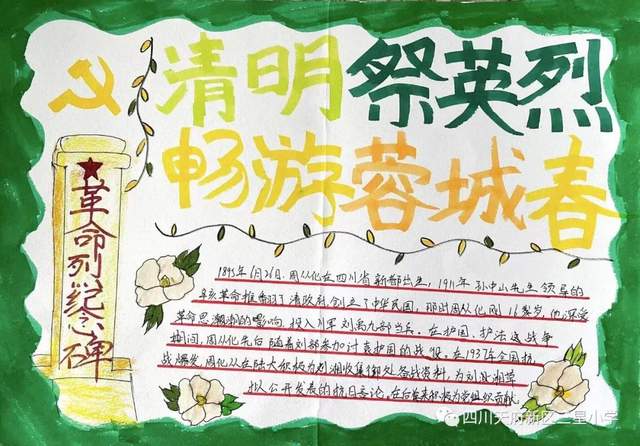 清明祭英烈
畅游蓉城春
革命烈士纪念碑
1895年6月21日,周从化在四川省新都出生,1911年孙中山先生领导的
辛亥革命推翻了清政府创立了中华民国,那时周从化刚16岁,他深受
革命思潮的影响,投入川军刘湘九部当兵,在护国、护法这战争
期间,周从化先后随着刘部参加讨袁护国的战役。在1937年全国抗
战爆发,周从化在陆大积极为刘湘收集御处备战资料,为刘湘草
拟公开发表的抗日言论,在后来积极为党组织贡献
四川天府新区三星小学